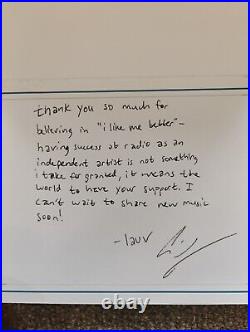 thank you so much for
believing in "i like me better" -
having success at radio as an
independent artist is not something
i take for granted, it means the
world to have your support. I
can't wait to share new music
soon!
-lauv